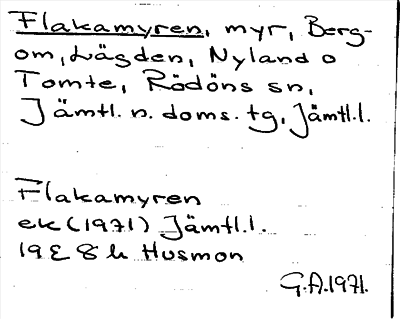 Flakamyren, myr, Berg-
om, Lägden, Nyland o
Tomte, Rödöns sn,
Jämtl. n. doms. tg, Jämtl.l.
Flakamyren
ek (1971) Jämtl.l.
19 E 8 h Husmon
G.A. 1971.